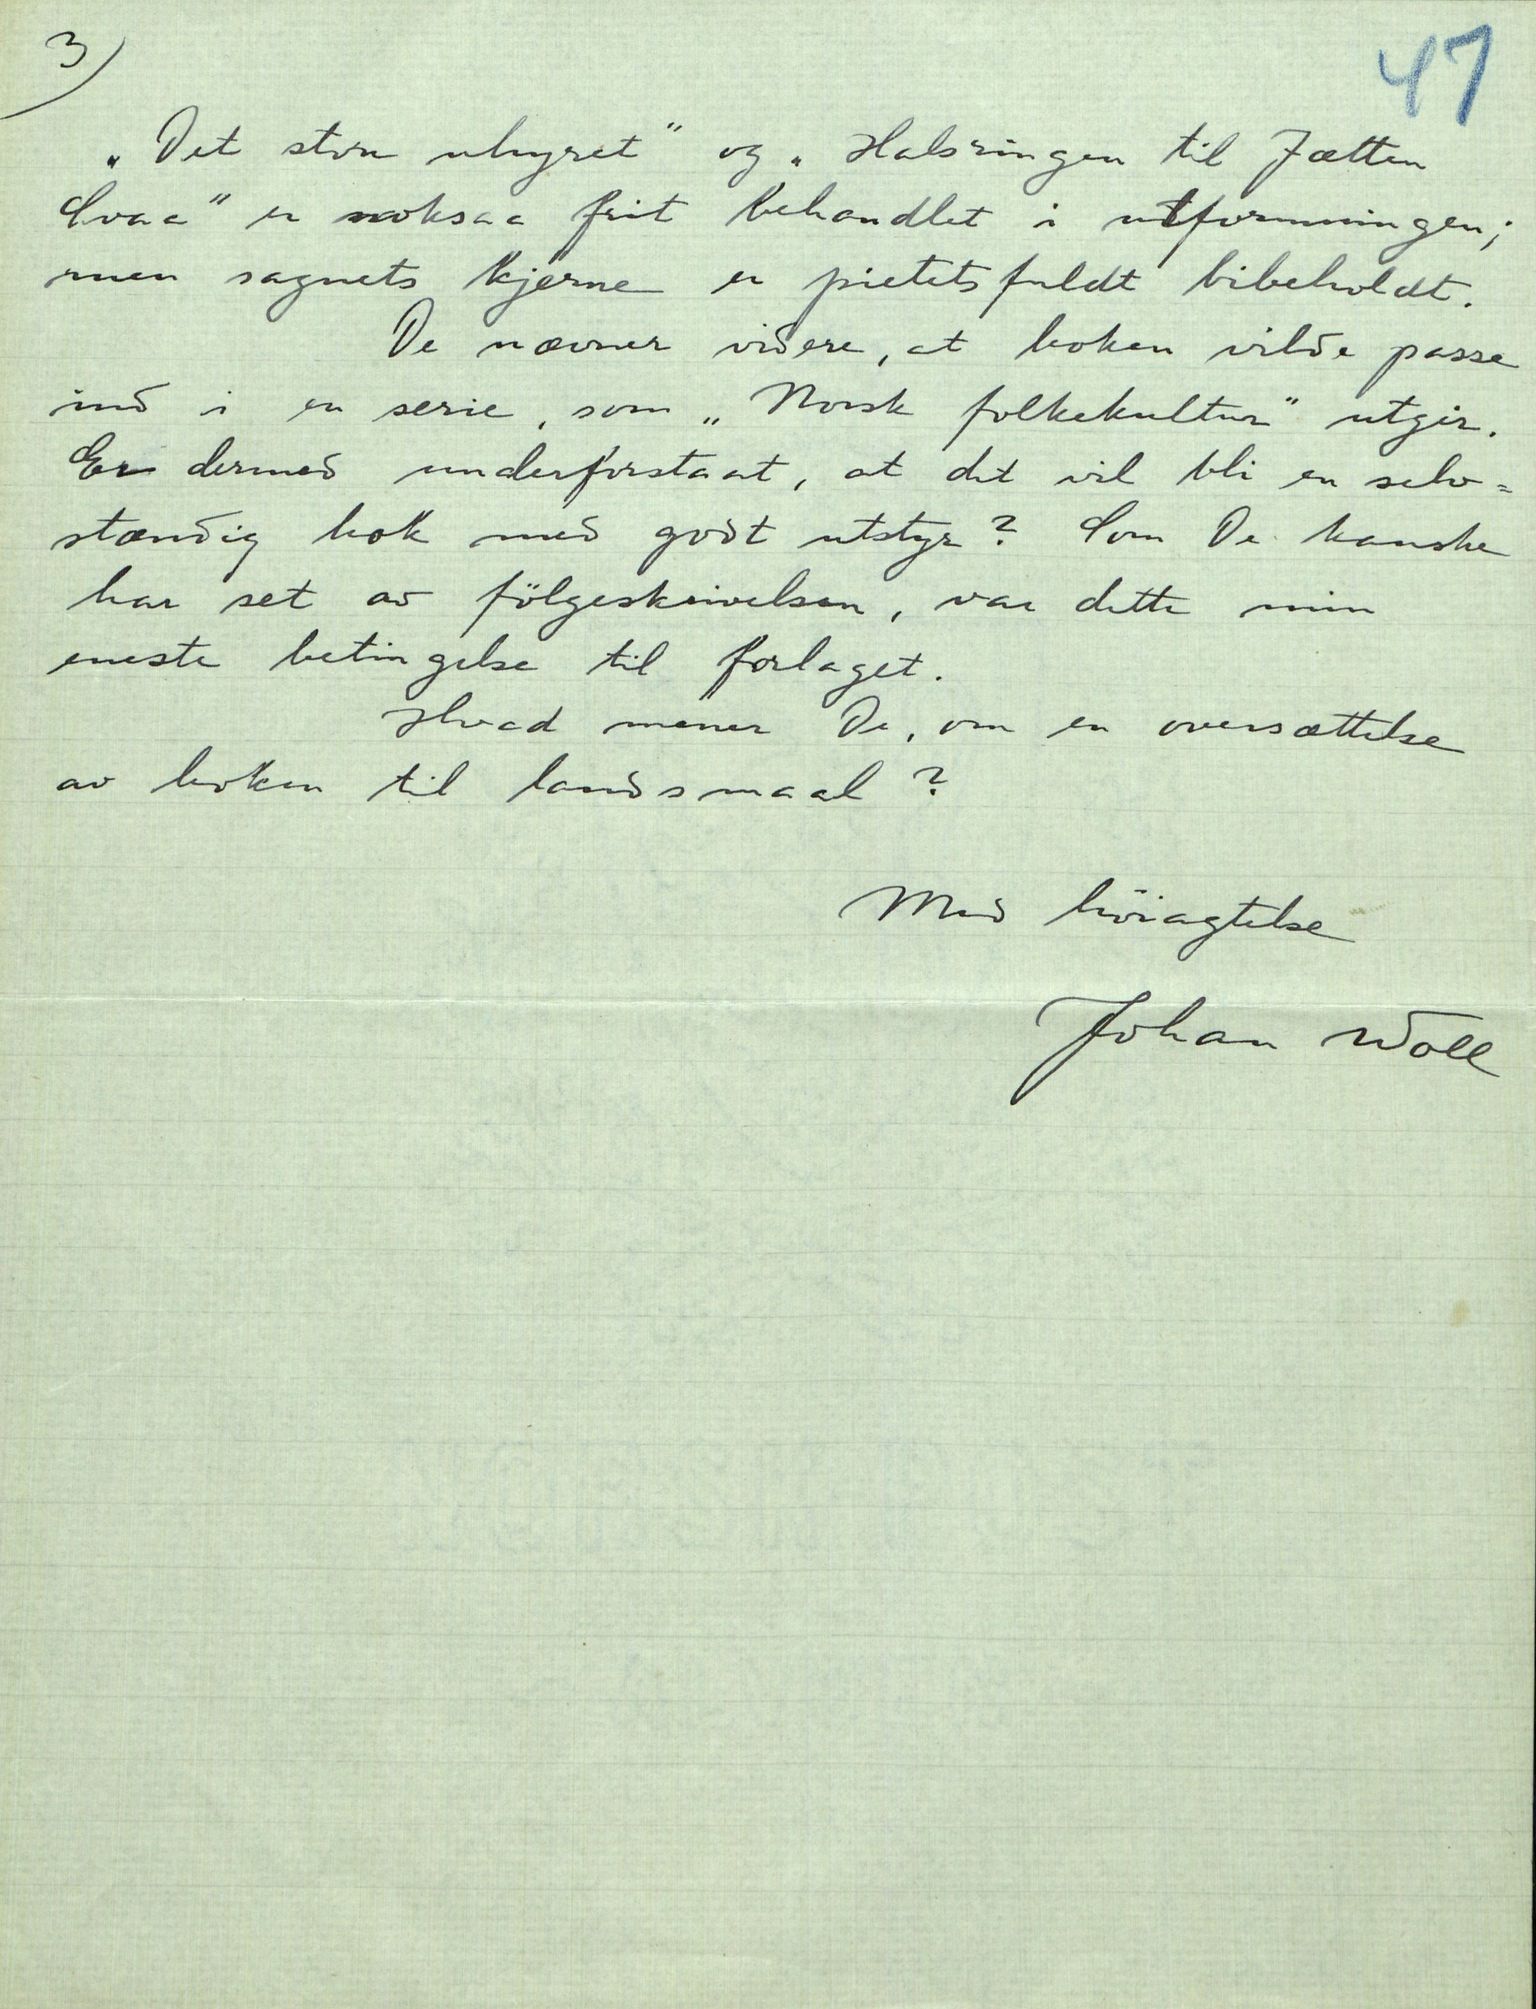 3)
47
„Det store uhyret" og „Halsringen til Jætten
Svaa" er noksaa frit behandlet i utformningen;
men sagnets kjerne er pietetsfuldt bibeholdt.
De nævner videre, at boken vilde passe
ind i en serie, som „Norsk folkekultur" utgir.
Er dermed underforstaat, at det vil bli en selv=
stændig bok med godt utstyr? Som De kanske
har set av fölgeskrivelsen, var dette min
eneste betingelse til forlaget.
Hvad mener De, om en oversættelse
av boken til landsmaal?
Med höiagtelse
Johan Woll